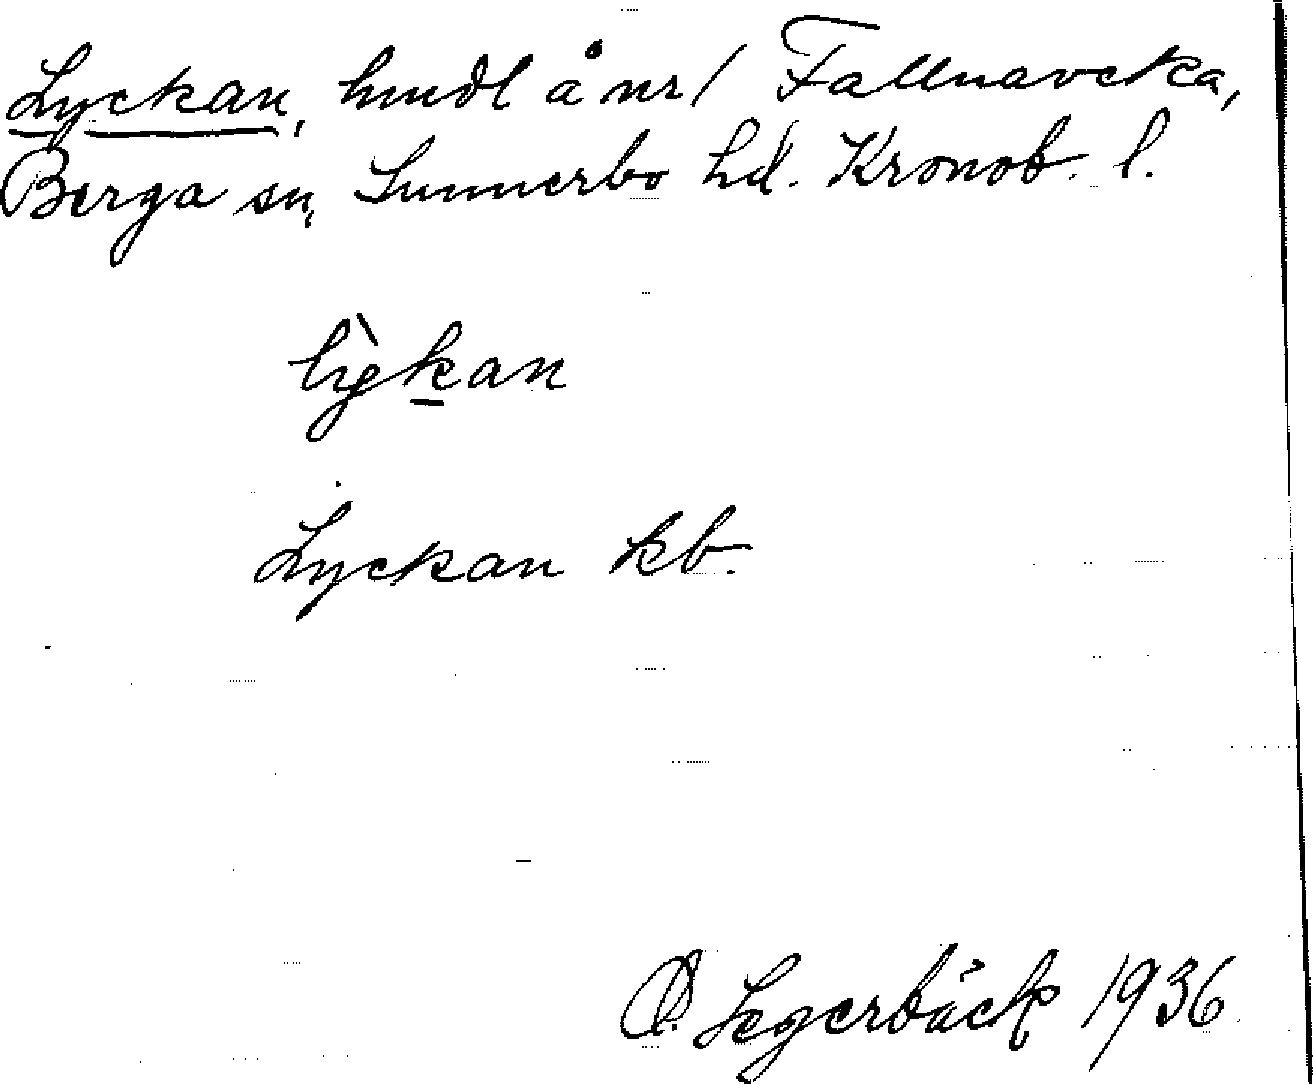 Lyckan, hmdl å nr 1 Fallnaveka,
Berga sn, Sunnerbo hd. Kronob. l.
lỳkan
Lyckan kb.
D Segerbäck 1936